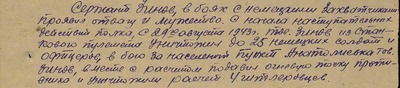 Сержант Гинов, в боях с немецкими захватчиками
проявил отвагу и мужество. С начала наступательных
действий полка, с 29го августа 1943г. тов. Гинов из стан-
кового пулемета уничтожил до 25 немецких солдат и
офицеров, в бою за населенный пункт Анатольевка тов.
Гинов, вместе с расчетом подавил огневую точку проти-
вника и уничтожили расчет 4 гитлеровцев.